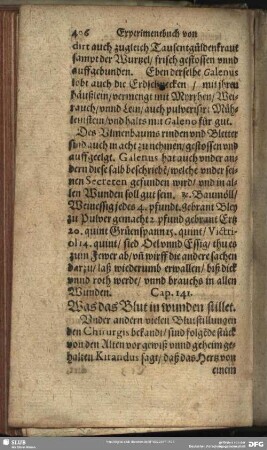 406 Experimentbuch von
dirt auch zugleich Tausentgüldenkraut
sampt der Wurtzel/ frisch gestossen vnnd
auffgebunden. Eben derselbe Galenus
lobt auch die Erdschnecken / mit jhren
häußlein/ vermengt mit Myrrhen/ Wei-
rauch/ vnnd Lein/ auch pulverisirt Mühl-
steinstein/ vnd halts mit Galeno für gut.
Des Vlmenbaums rinden vnd Bletter
sind auch in acht zu nehmen/ gestossen vnd
auffgelegt. Galenus hat auch vnder an-
dern diese salb beschriebē/ welche vnder sei-
nen Secreten gefunden wird/ vnd in all
len Wunden soll gut sein. ꝶ. Baumöll/
Weinessig jedes 4. pfundt. gebrant Bley
zu Pulver gemacht 2. pfund gebrant Ertz
20. quint Grüenspannes 5. quint/ Victri-
ol 14. quint/ sied Oel vnnd Essig/ thu es
zum Fewer ab/ vñ wirff die andere sachen
darzu/ laß wiederumb erwallen/ biß dick
vnnd roth werde/ vnd brauchs in allen
Wunden. Cap. 141.
Was das Blut in wunden stillet.
Vnder andern vielen Blutstillungen
den Chirurgis bekandt/ sind folgēde stück
von den Alten vor gewiß vnnd geheim ge-
halten Kirandus sagt/ daß das Hertz von
einem
SLUB